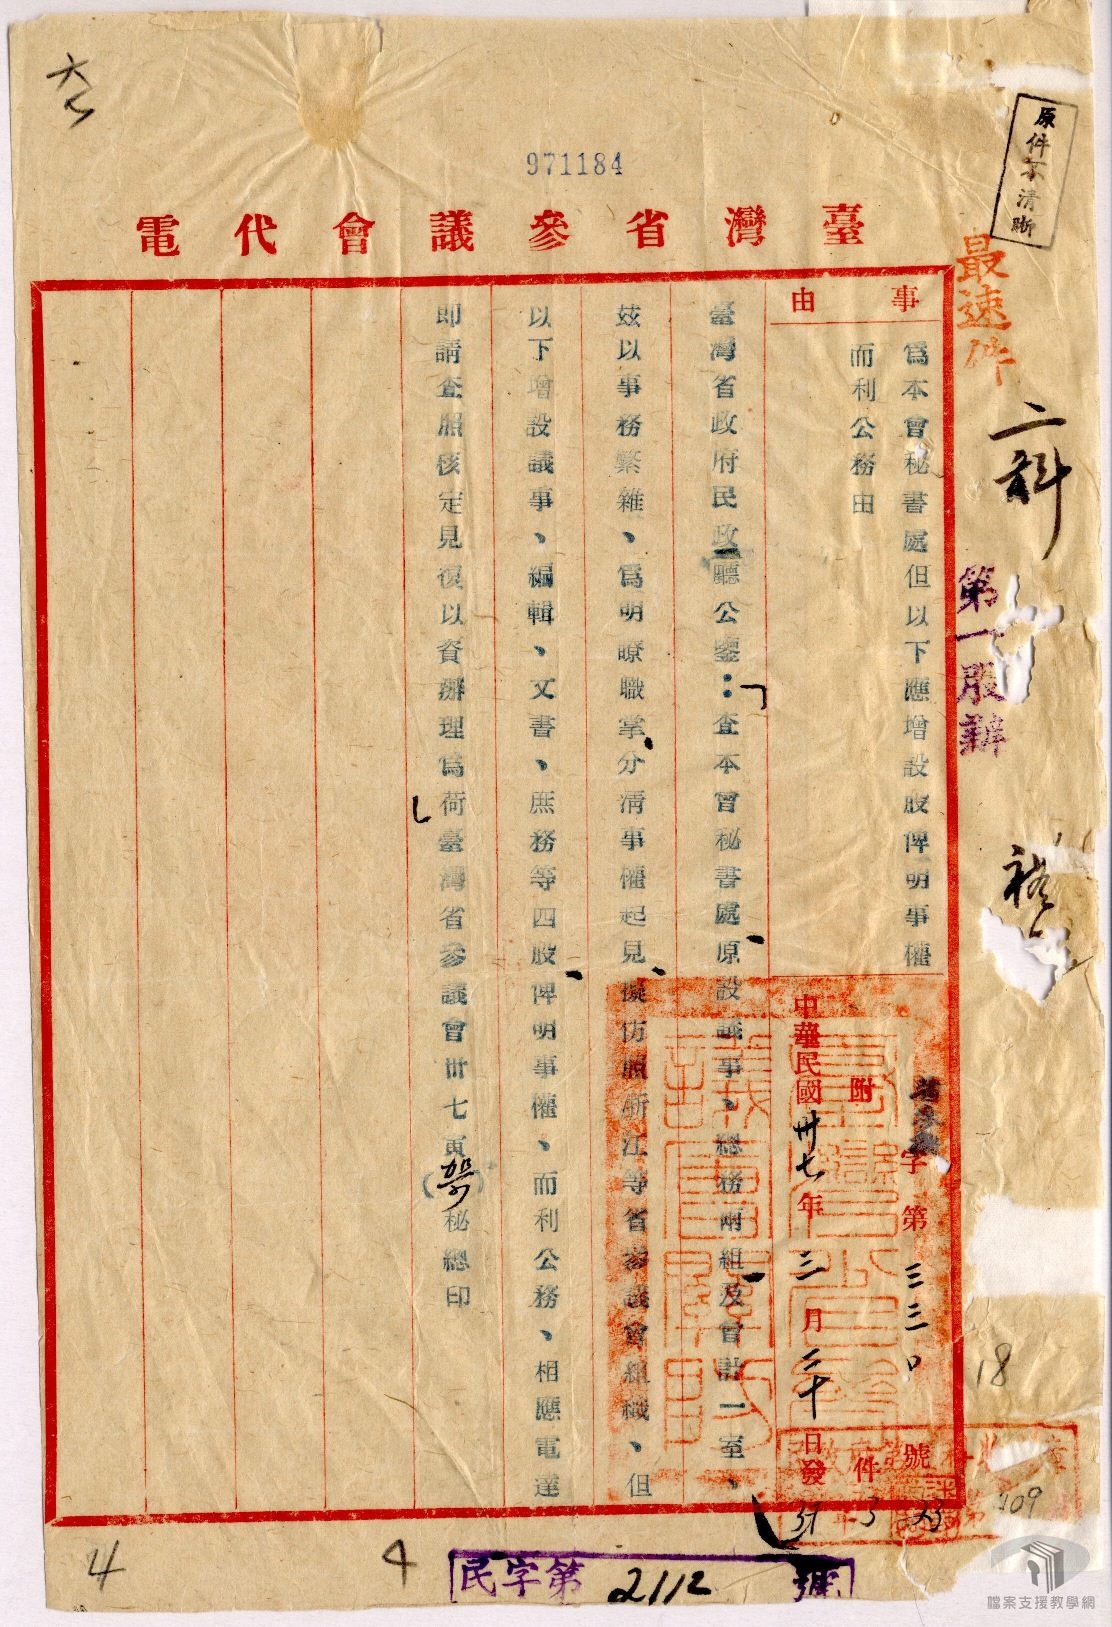 971184
臺灣省參議會代電
原件不清晰
最速件
二科
第一股辦
事由
為本會秘書處但以下應增設股俾明事權
而利公務由
字第三三〇號
附件
中華民國卅七年三月二十日發
臺灣省政府民政廳公鑒：查本會秘書處原設議事、總務兩組及會計一室、
茲以事務繁雜、為明瞭職掌分清事權起見擬仿照浙江等省參議會組織、但
以下增設議事、編輯、文書、庶務等四股俾明事權、而利公務、相應電達
即請查照核定見復以資辦理為荷臺灣省參議會卅七寅()秘總印
18
109
37 3 23
4
4
民字第2112號
檔案支援教學網